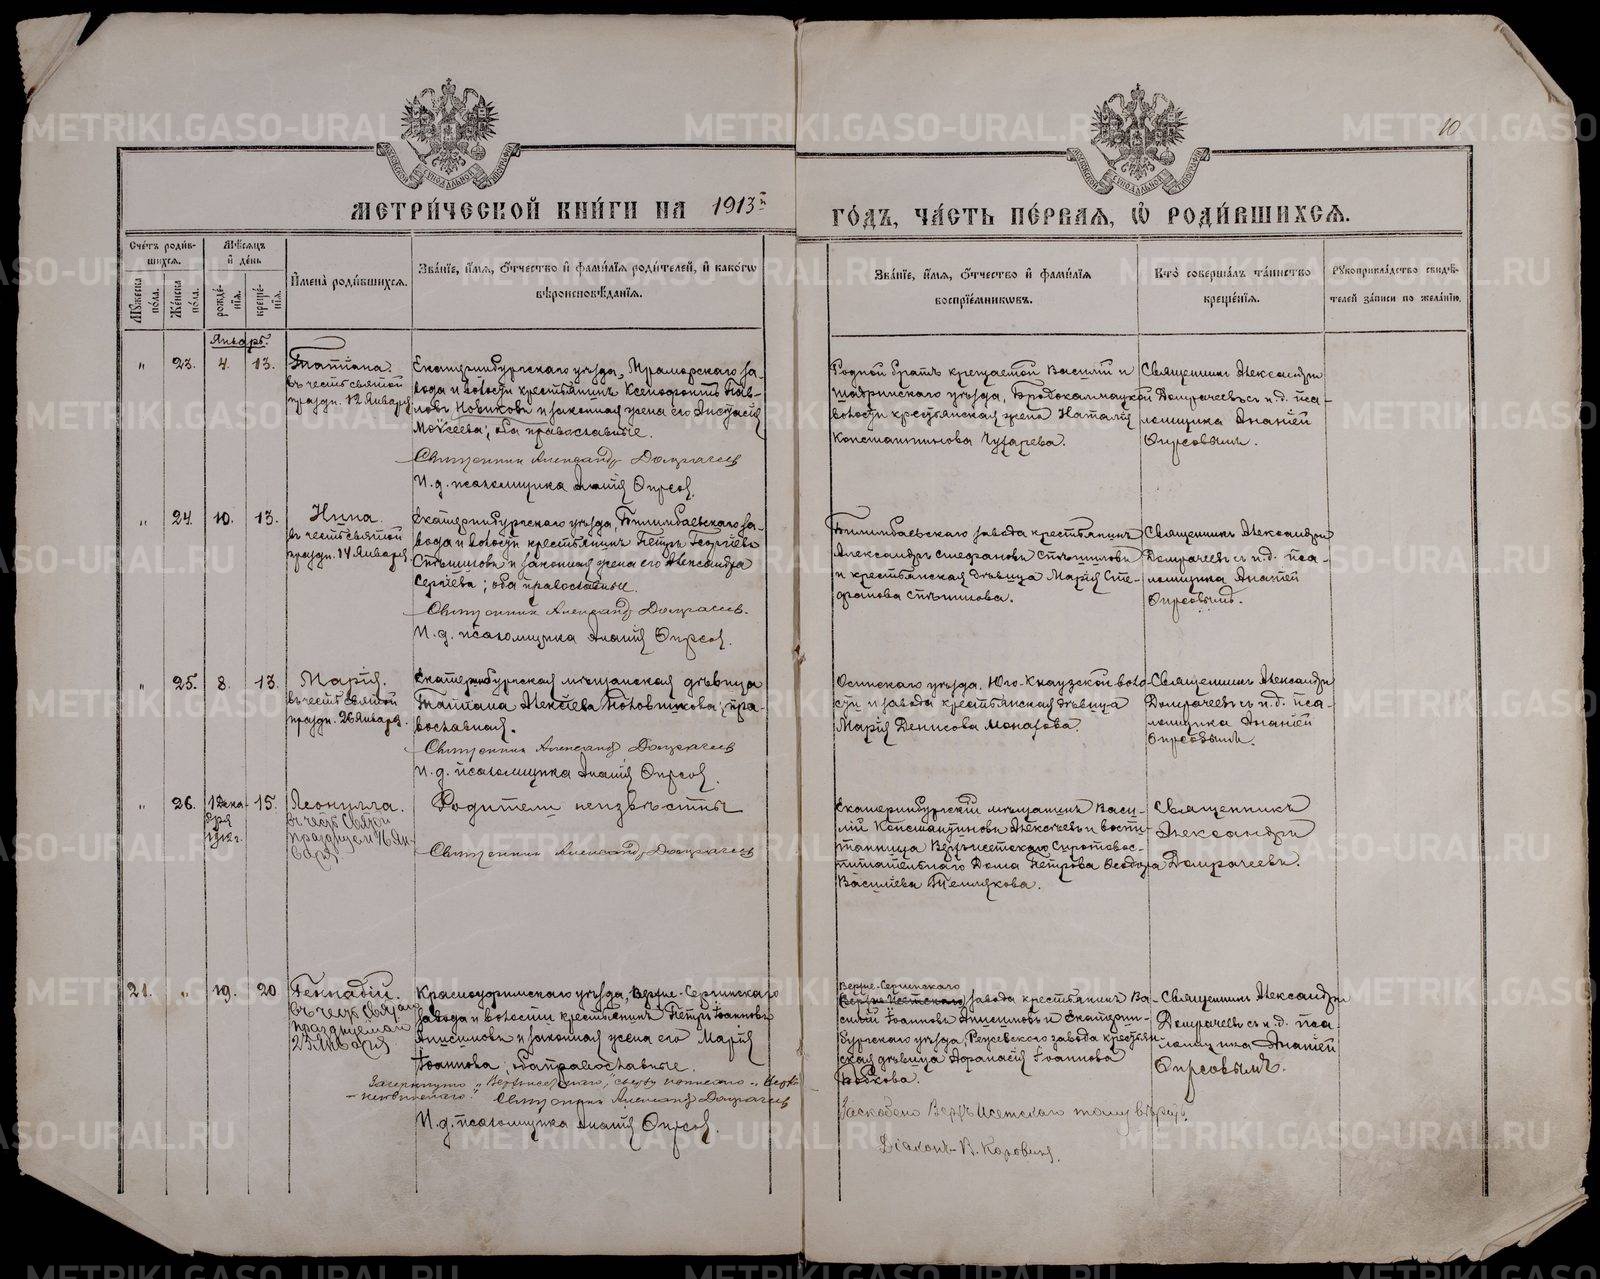 10
МЕТРИ́ЧЕСКОЙ КНИ́ГИ НА 1913й
ГО́ДЪ, ЧА́СТЬ ПЕ́РВАЯ, Ѡ҆ РОДИ́ВШИХСЯ.
Счётъ роди́в-
шихся.
Мꙋ́жеска по́ла.
Же́нска по́ла.
Мѣ́сяцъ
и҆ де́нь
рожде́-
нїя.
креще́-
нїя.
И҆мена̀ роди́вшихся.
Зва́нїе, и҆́мя, ѻ҆́тчество и҆ фами́лїя роди́телей, и҆ како́гѡ
вѣроисповѣ́данїя.
Зва́нїе, и҆́мя, ѻ҆́тчество и҆ фами́лїя
воспрїе́мниковъ.
Кто̀ соверша́лъ та́инство
креще́нїя.
Рꙋкоприкла́дство свидѣ́-
телей за́писи по жела́нїю.
Январь.
" 23. 4. 13.
Татіана.
въ честь святой
праздн. 12 Января
Екатеринбургскаго уѣзда, Мраморскаго за-
вода и волости крестьянинъ Ксенофонтъ Пав-
ловъ Новиковъ и законная жена его Анастасія
Моѵсеева; оба православные.
Священникъ Александръ Домрачевъ
И. д. псаломщика Ананій Фирсов.
Родной братъ крещаемой Василій и
Шадринскаго уѣзда, Бродокалмацкой
волости крестьянская жена Наталія
Константинова Чухарева.
Священникъ Александръ
Домрачевъ съ и. д. пса-
ломщика Ананіей
Фирсовымъ.
" 24. 10. 13.
Нина.
въ честь святой
праздн. 14 Января
Екатеринбургскаго уѣзда, Билимбаевскаго за-
вода и волости крестьянинъ Петръ Георгіевъ
Стѣшиловъ и законная жена его Александра
Сергіева; оба православные.
Священникъ Александръ Домрачевъ.
И. д. псаломщика Ананій Фирсов.
Билимбаевскаго завода крестьянинъ
Александръ Стефановъ
и крестьянская дѣвица Марія Сте-
фанова
Священникъ Александръ
Домрачевъ съ и. д. пса-
ломщика Ананіей
Фирсовымъ.
" 25. 8. 13.
Марія.
въ честь святой
праздн. 26 Января.
Екатеринбургская мѣщанская дѣвица
Татіана Алексіева Половникова; пра-
вославная.
Священникъ Александръ Домрачевъ
И. д. псаломщика Ананій Фирсов.
Осинскаго уѣзда, Юго-Кнауфской воло-
сти и завода крестьянская дѣвица
Марія Денисова
Священникъ Александръ
Домрачевъ съ и. д. пса-
ломщика Ананіей
Фирсовымъ.
" 26. 1 Дека-
бря
1912 г. 15.
Леонилла.
въ честь Святой
празднуемой 16 Ян-
варя
Родители неизвѣстны
Священникъ Александръ Домрачевъ
Екатеринбургскій мѣщанинъ Васи-
лій Константиновъ и воспи-
танница Верхъисетскаго Сиротовос-
питательнаго Дома Петрова Ѳеодора
Васильева
Священникъ
Александръ
Домрачевъ.
21. " 19. 20
Геннадій.
въ честь Святаго
празднуемаго
23 Января
Красноуфимскаго уѣзда, Верхне-Сергинскаго
завода и волости крестьянинъ Петръ Іоанновъ
Анисимовъ и законная жена его Марія
Іоаннова, оба православные.
Зачеркнуто „Верхъисетскаго", сверху написано „Верхне-
Священникъ Александръ Домрачевъ
И. д. псаломщика Ананій Фирсов.
Верхне-Сергинскаго
Верхне-Исетскаго завода крестьянинъ Ва-
силій Іоанновъ Анисимовъ и Екатерин-
бургскаго уѣзда, Режевского завода крестьян-
ская дѣвица Аѳанасія Іоаннова
Бобкова.
Священникъ Александръ
Домрачевъ съ и. д. пса-
ломщика Ананіей
Фирсовымъ.
Заскоблено Верхъ Исетскаго тому вѣрить.
Діаконъ В. Коровинъ.
METRIKI.GASO-URAL.RU